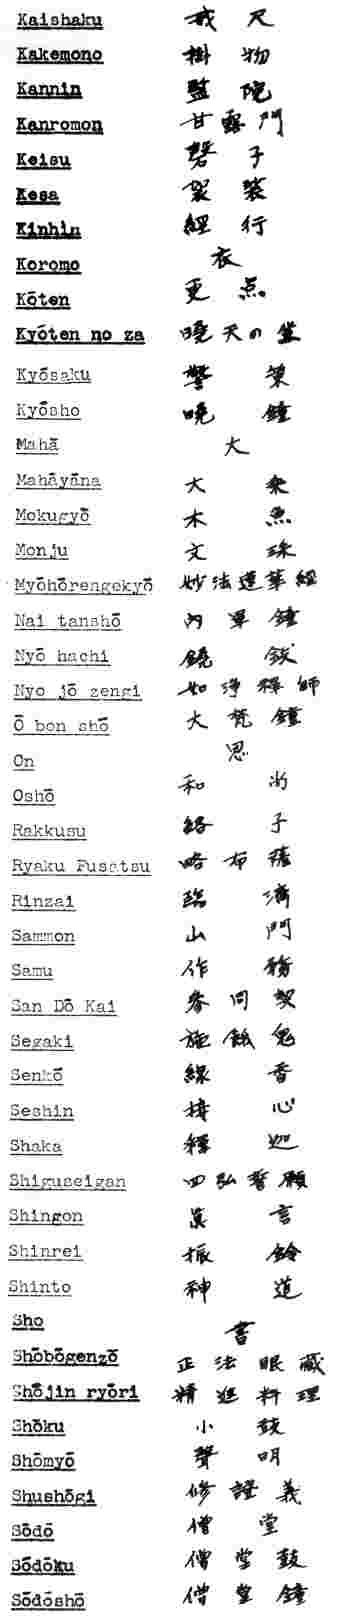 Kaishaku 戒尺
Kakemono 掛物
Kannin 監院
Kanromon 甘露門
Keisu 磬子
Kesa 袈裟
Kinhin 經行
Koromo 衣
Kōten 更点
Kyōten no za 曉天の坐
Kyōsaku 警策
Kyōsho 曉鐘
Mahā 大
Mahāyāna 大乘
Mokugyō 木魚
Monju 文殊
Myōhōrengekyō 妙法蓮華經
Nai tanshō 内單鐘
Nyō hachi 鐃鈸
Nyo jō zengi 如淨禅師
Ō bon shō 大梵鐘
On 恩
Oshō 和尚
Rakkusu 絡子
Ryaku Fusatsu 略布薩
Rinzai 臨濟
Sammon 山門
Samu 作務
San Dō Kai 參同契
Segaki 施餓鬼
Senkō 線香
Seshin 接心
Shaka 釋迦
Shiguseigan 四弘誓願
Shingon 眞言
Shinrei 振鈴
Shinto 神道
Sho 書
Shōbōgenzō 正法眼藏
Shōjin ryōri 精進料理
Shōku 小鼓
Shōmyō 聲明
Shushōgi 修證義
Sōdō 僧堂
Sōdōku 僧堂鼓
Sōdōshō 僧堂鐘